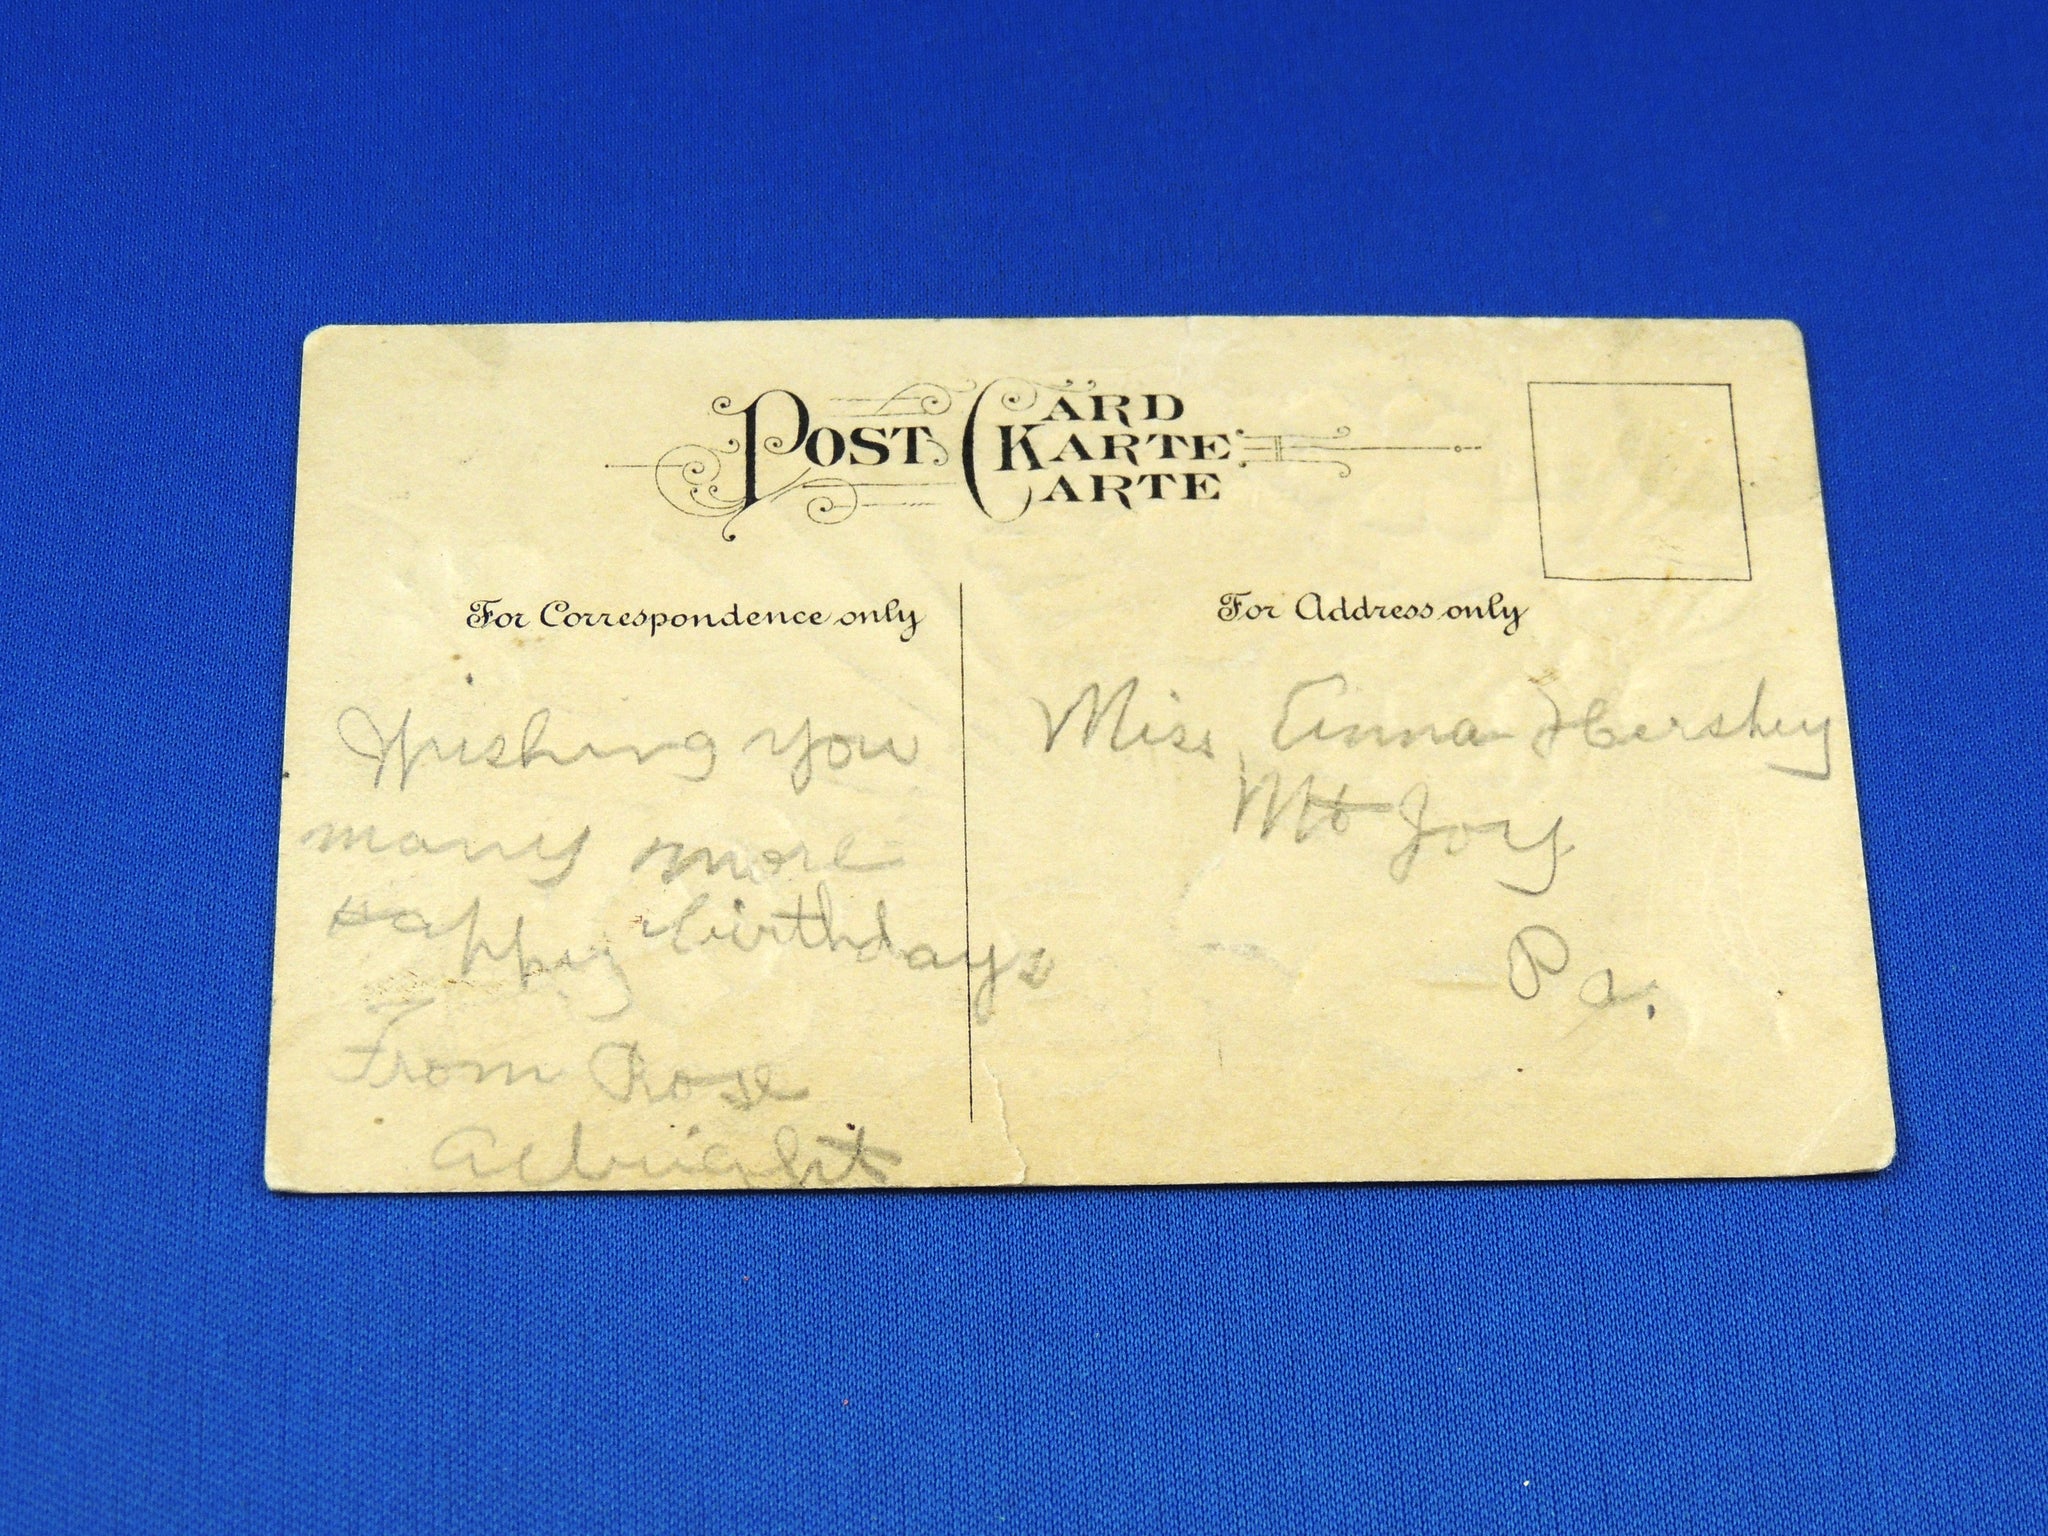 POST CARD
KARTE
CARTE
For Correspondence only
For Address only
Wishing you
many more
happy birthdays
From Rose
Albright
Miss Anna Hershey
Mt Joy
Pa.